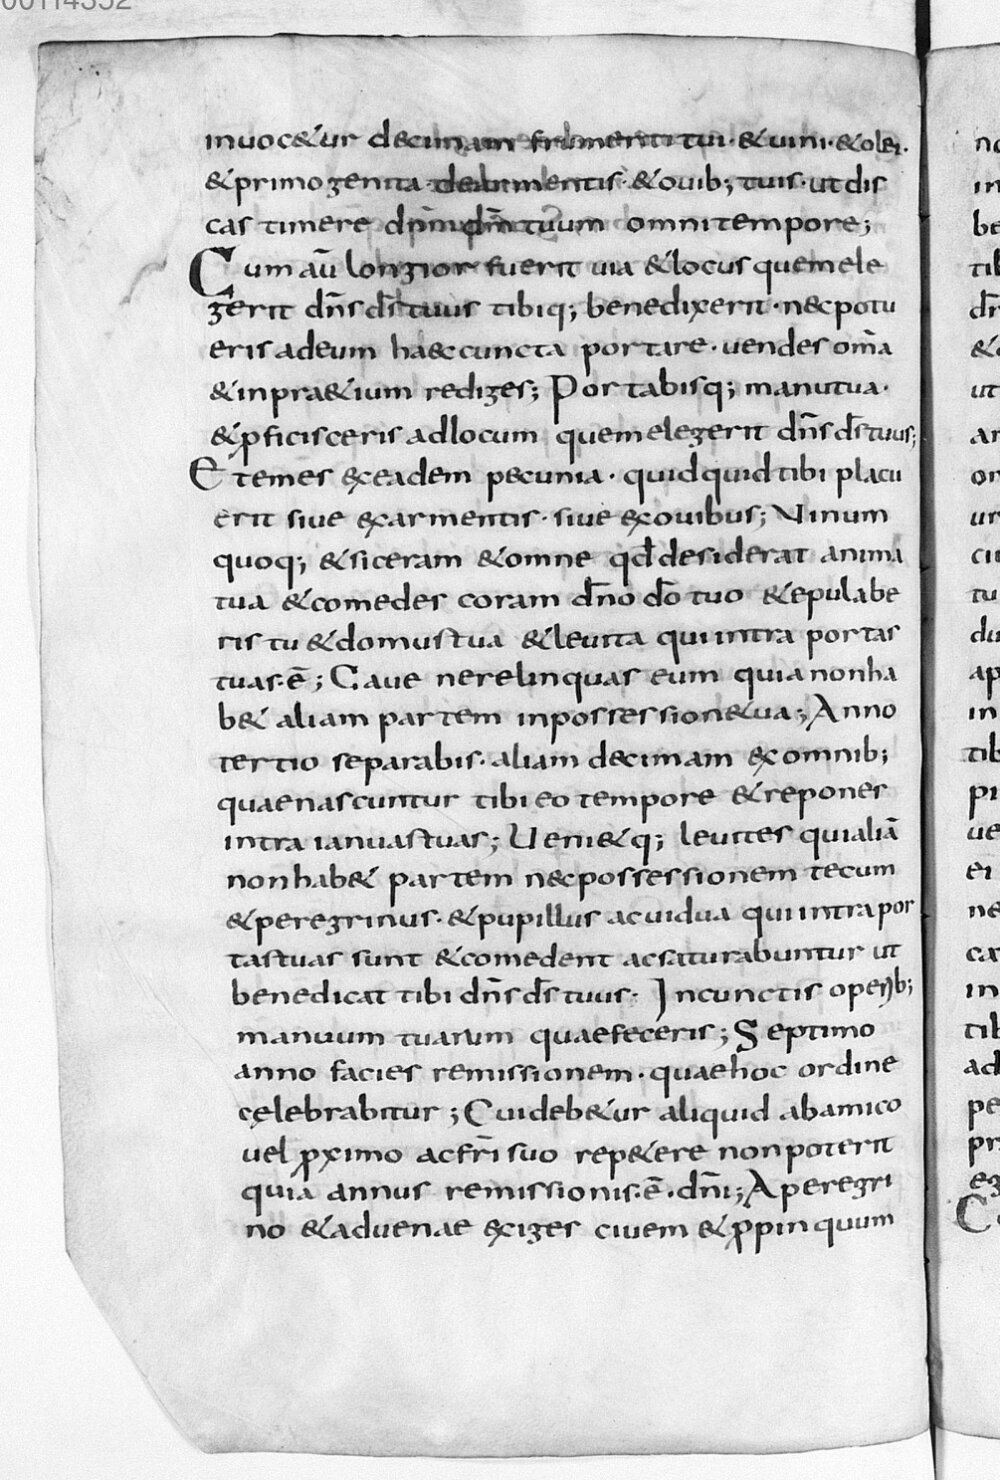 00114352
inuoc&ur decimam frumenti tui· &uini· &olei·
&primogenita de armentis· &ouib; tuis· ut dis
cas timere dn̄m dm̄ tuum omni tempore;
Cum aū longior fuerit uia &locus quem ele
gerit dn̄s ds̄ tuus tibiq; benedixerit· nec potu
eris ad eum haec cuncta portare· uendes om̄a
&in pra&ium rediges; Portabisq; manu tua·
&ꝓficisceris ad locum quem elegerit dn̄s ds̄ tuus;
Et emes ex eadem pecunia· quidquid tibi placu
erit siue ex armentis· siue ex ouibus; Vinum
quoq; &siceram &omne qd̄ desiderat anima
tua &comedes coram dn̄o dō tuo &epulabe
ris tu &domus tua &leuita qui intra portas
tuas ē; Caue ne relinquas eum quia non ha
b& aliam partem in possessione tua; Anno
tertio separabis· aliam decimam ex omnib;
quae nascuntur tibi eo tempore &repones
intra ianuas tuas; Ueni&q; leuites qui aliā
non hab& partem nec possessionem tecum
&peregrinus· &pupillus ac uidua qui intra por
tas tuas sunt &comedent ac saturabuntur ut
benedicat tibi dn̄s ds̄ tuus· In cunctis operib;
manuum tuarum quae feceris; Septimo
anno facies remissionem· quae hoc ordine
cęlebrabitur; Cui deb&ur aliquid ab amico
uel ꝓximo ac fr̄i suo rep&ere non poterit
quia annus remissionis ē· dn̄i; A peregri
no &aduenae exiges ciuem &ꝓpinquum